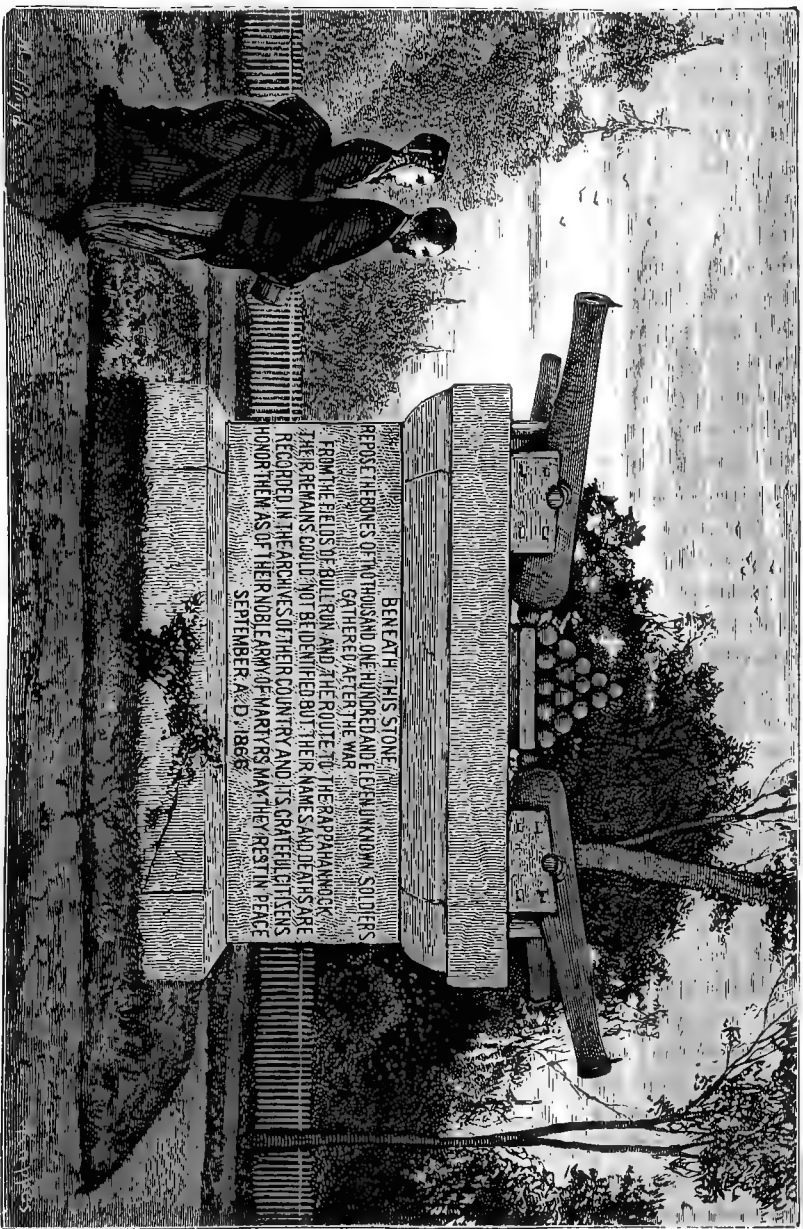 BENEATH THIS STONE
REPOSE THE BONES OF TWO THOUSAND ONE HUNDRED AND ELEVEN UNKNOWN SOLDIERS
GATHERED AFTER THE WAR
FROM THE FIELDS OF BULL RUN AND THE ROUTE TO THE RAPPAHANNOCK
THEIR REMAINS COULD NOT BE IDENTIFIED BUT THEIR NAMES AND DEATHS ARE
RECORDED IN THE ARCHIVES OF THEIR COUNTRY AND ITS GRATEFUL CITIZENS
HONOR THEM AS OF THEIR NOBLE ARMY OF MARTYRS MAY THEY REST IN PEACE
SEPTEMBER A.D. 1866